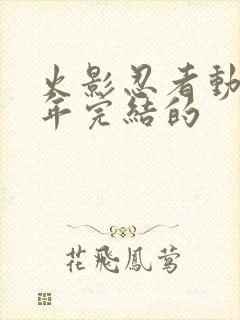 火影忍者動
年完結的
花飛鳳鶯